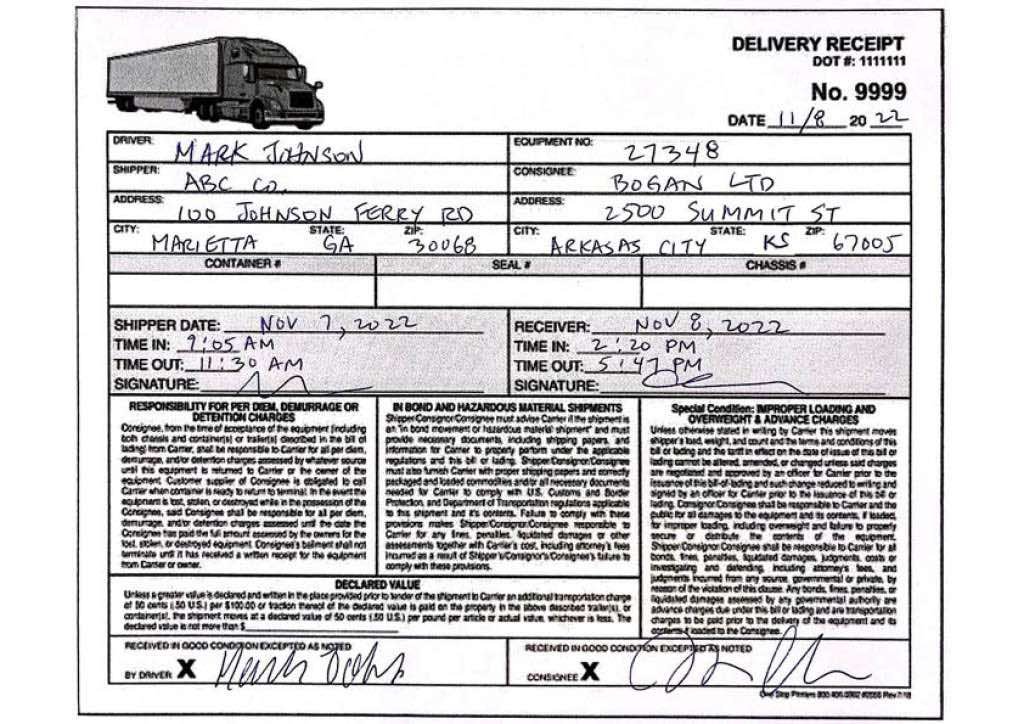 DELIVERY RECEIPT
DOT #: 1111111
No. 9999
DATE 11/8 20 22
DRIVER: MARK JOHNSON EQUIPMENT NO: 27348
SHIPPER: ABC CO. CONSIGNEE: BOGAN LTD
ADDRESS: 100 JOHNSON FERRY RD ADDRESS: 2500 SUMMIT ST
CITY: MARIETTA STATE: GA ZIP: 30068 CITY: ARKASAS CITY STATE: KS ZIP: 67005
CONTAINER # SEAL # CHASSIS #
SHIPPER DATE: NOV 7, 2022 RECEIVER: NOV 8, 2022
TIME IN: 9:05 AM TIME IN: 2:20 PM
TIME OUT: 11:30 AM TIME OUT: 5:47 PM
SIGNATURE: SIGNATURE:
RESPONSIBILITY FOR PER DIEM, DEMURRAGE OR
DETENTION CHARGES
Consignee, from the time of acceptance of the equipment (including
both chassis and container(s) or trailer(s) described in the bill of
lading) from Carrier, shall be responsible to Carrier for all per diem,
demurrage, and/or detention charges assessed by whatever source
until this equipment is returned to Carrier or the owner of the
equipment. Customer supplier of Consignee is obligated to call
Carrier when container is ready to return to terminal. In the event the
equipment is lost, stolen, or destroyed while in the possession of the
Consignee, said Consignee shall be responsible for all per diem,
demurrage, and/or detention charges assessed until the date the
Consignee has paid the full amount assessed by the owners for the
lost, stolen, or destroyed equipment. Consignee's bailment shall not
terminate until it has received a written receipt for the equipment
from Carrier or owner.
IN BOND AND HAZARDOUS MATERIAL SHIPMENTS
Shipper/Consignor/Consignee must advise Carrier if the shipment is
an "in bond movement or hazardous material shipment" and must
provide necessary documents, including shipping papers, and
information for Carrier to properly perform under the applicable
regulations and this bill of lading. Shipper/Consignor/Consignee
must also furnish Carrier with proper shipping papers and correctly
packaged and loaded commodities and/or all necessary documents
needed for Carrier to comply with U.S. Customs and Border
Protection, and Department of Transportation regulations applicable
to this shipment and it's contents. Failure to comply with these
provisions makes Shipper/Consignor/Consignee responsible to
Carrier for any fines, penalties, liquidated damages or other
assessments together with Carrier's cost, including attorney's fees
incurred as a result of Shipper's/Consignor's/Consignee's failure to
comply with these provisions.
Special Condition: IMPROPER LOADING AND
OVERWEIGHT & ADVANCE CHARGES
Unless otherwise stated in writing by Carrier this shipment moves
shipper's load, weight, and count and the terms and conditions of this
bill or lading and the tariff in effect on the date of issue of this bill or
lading cannot be altered, amended, or changed unless said charges
are negotiated and approved by an officer for Carrier prior to the
issuance of this bill-of-lading and such change reduced to writing and
signed by an officer for Carrier prior to the issuance of this bill or
lading. Consignor shall be responsible to Carrier and the
public for all damages to the equipment and its contents, if loaded,
for improper loading, including overweight and failure to properly
secure or distribute the contents of the equipment.
Shipper/Consignor/Consignee shall be responsible to Carrier for all
bonds, fines, penalties, liquidated damages, judgments, costs or
investigating and defending, including attorney's fees, and
judgments incurred from any source, governmental or private, by
reason of the violation of this clause. Any bonds, fines, penalties, or
liquidated damages assessed by any governmental authority are
advance charges due under this bill or lading and are transportation
charges to be paid prior to the delivery of the equipment and its
contents if loaded to the Consignee.
DECLARED VALUE
Unless a greater value is declared and written in the place provided prior to tender of the shipment to Carrier an additional transportation charge
of 50 cents (.50 U.S.) per $100.00 or fraction thereof of the declared value is paid on the property in the above described trailer(s), or
container(s), the shipment moves at a declared value of 50 cents (.50 U.S.) per pound per article or actual value, whichever is less. The
declared value is not more than $
RECEIVED IN GOOD CONDITION EXCEPTED AS NOTED RECEIVED IN GOOD CONDITION EXCEPTED AS NOTED
BY DRIVER X Mark Johns CONSIGNEE X
One Stop Printers 800 406 0302 #2555 Rev 7/18